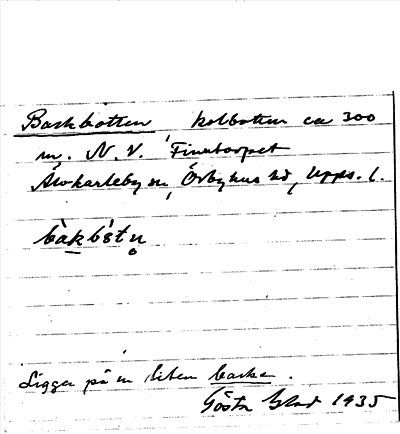 Backbotten kolbotten ca 300
m. N. V. Finntorpet
Älvkarleby sn, Örbyhus hd, Upps. l.
bàkbótn
Ligger på en liten backe.
Gösta 1935